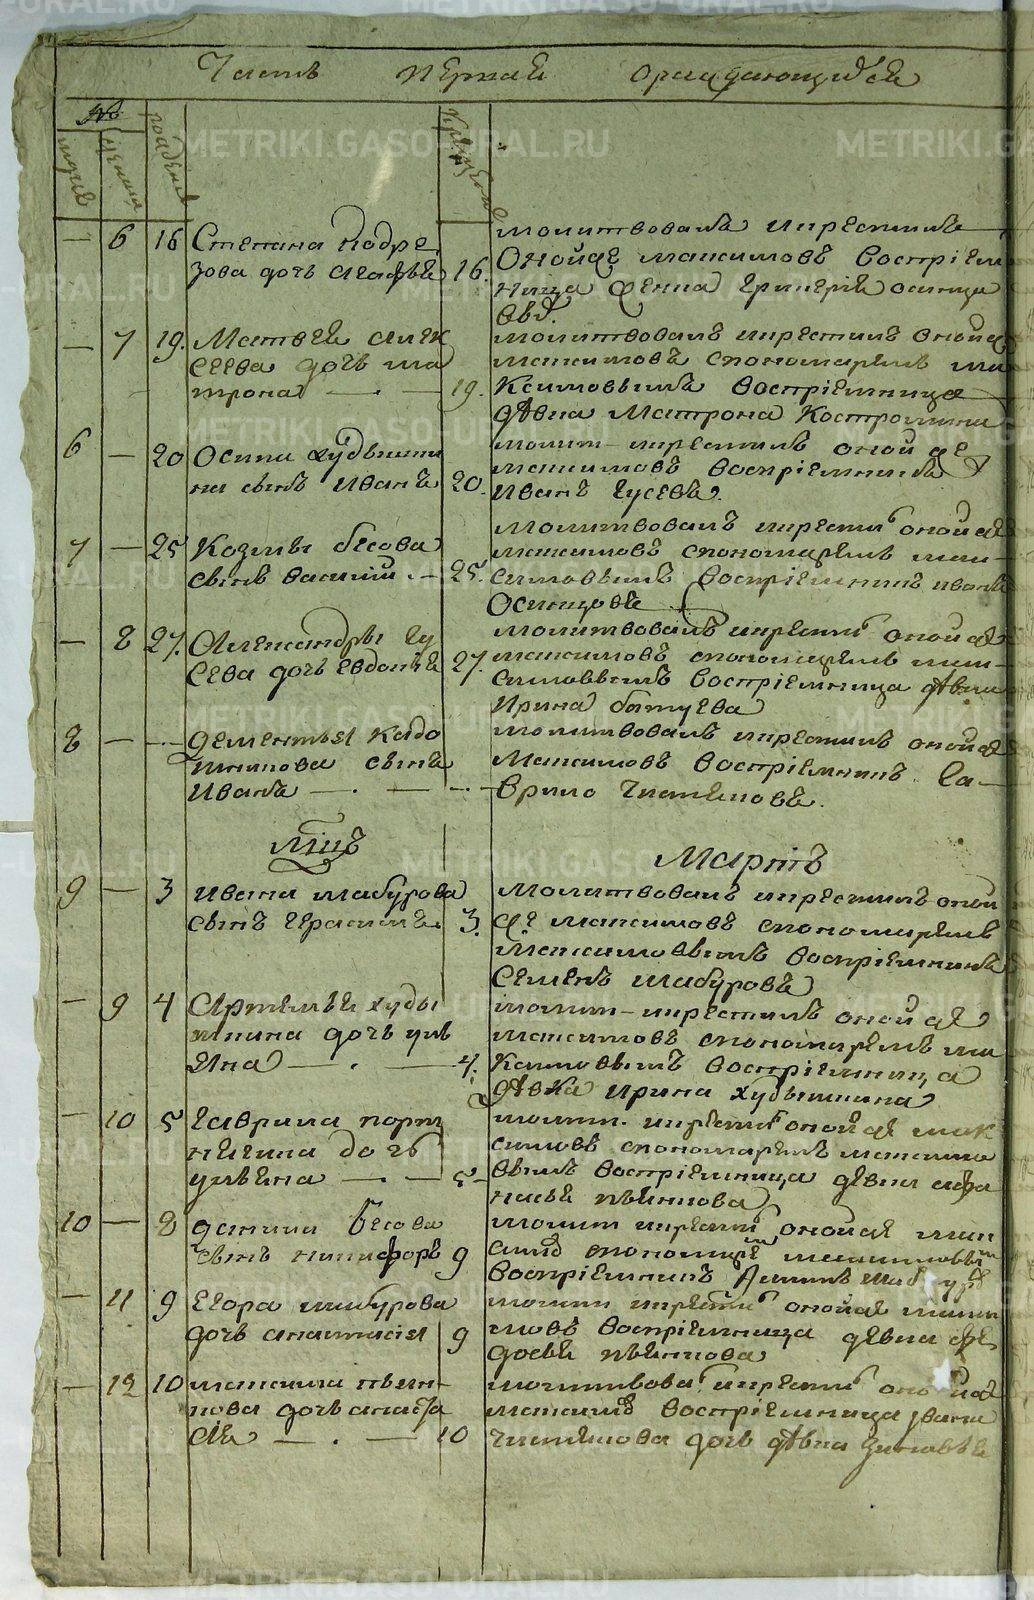 Часть первая о раждающихся
№
мужеска
женска
рождение
крещение
— 6 16 Степана Подре
зова дочь Агафья 16.
молитвовалъ и крестилъ
Онойже Максимовъ восприем
ница Фекла Григорье Осинце
вых.
— 7 19. Матвея Алек
сеева дочь Ма
трона — . — 19.
молитвовалъ и крестилъ онойже
Максимовъ спономаремъ Ма
ксимовымъ восприемница
девка Матрона Костромина
6 — 20 Осипа Худышки
на сынъ Иванъ 20.
молит— и крестилъ онойже
Максимовъ восприемникъ
Иванъ Гусевъ.
7 — 25 Козмы Бесова
сынъ Василий . — 25.
молитвовалъ и крестилъ онойже
Максимовъ спономаремъ Мак—
симовымъ восприемникъ Иванъ
Осинцовъ
— 8 27. Александры Гу
сева дочь Евдокия 27.
молитвовалъ и крестилъ онойже
Максимовъ спономаремъ Мак—
симовымъ восприемница девка
Ирина Батуева
8 — — Дементья Кадо
шникова сынъ
Иванъ — . — —
молитвовалъ и крестилъ онойже
Максимовъ восприемникъ Га—
врило Чистяковъ.
Мцъ Мартъ
9 — 3 Ивана Шабурова
сынъ Герасимъ. 3.
молитвовалъ и крестилъ оной
же Максимовъ спономаремъ
Максимовымъ восприемникъ
Семенъ Шабуровъ
— 9 4 Артемья Худы
шкина дочь Уль
яна — . — 4.
молит— и крестилъ онойже
Максимовъ спономаремъ Ма
ксимовымъ восприемница
девка Ирина Худышкина
— 10 5 Гаврила Порт
нягина дочь
Ульяна — . — 5—
молит. и крестилъ онойже Мак
симовъ спономаремъ Максимо
вымъ восприемница девка Афа
насья Пьянкова
10 — 8 Данила Бесова
сынъ Никифоръ 9
молит и крестил онойже Мак
симов спономарем Максимовым
восприемникъ Шабуров
— 11 9 Егора Шабурова
дочь Анастасия 9
молит и крестил онойже Макси
мовъ восприемница девка Фе
досья Пьянкова
— 12 10 Максима Пьян—
кова дочь Анаста
сия — . — 10
молитвовал и крестил онойже
Максимовъ восприемница Ивана
Чистякова дочь девка Зиновья